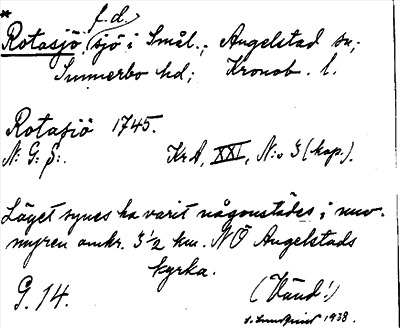 * f.d.
Rotasjö, sjö i Smål.; Angelstad sn;
Sunnerbo hd; Kronob. l.
Rotasiö 1745.
N: G: S:. KrA, XXI, N:o 3 (kop.).
Läget synes ha varit någonstädes i nuv.
myren omkr. 3 1/2 km. NÖ Angelstads
kyrka.
G. 14. (Vänd!)
1938.